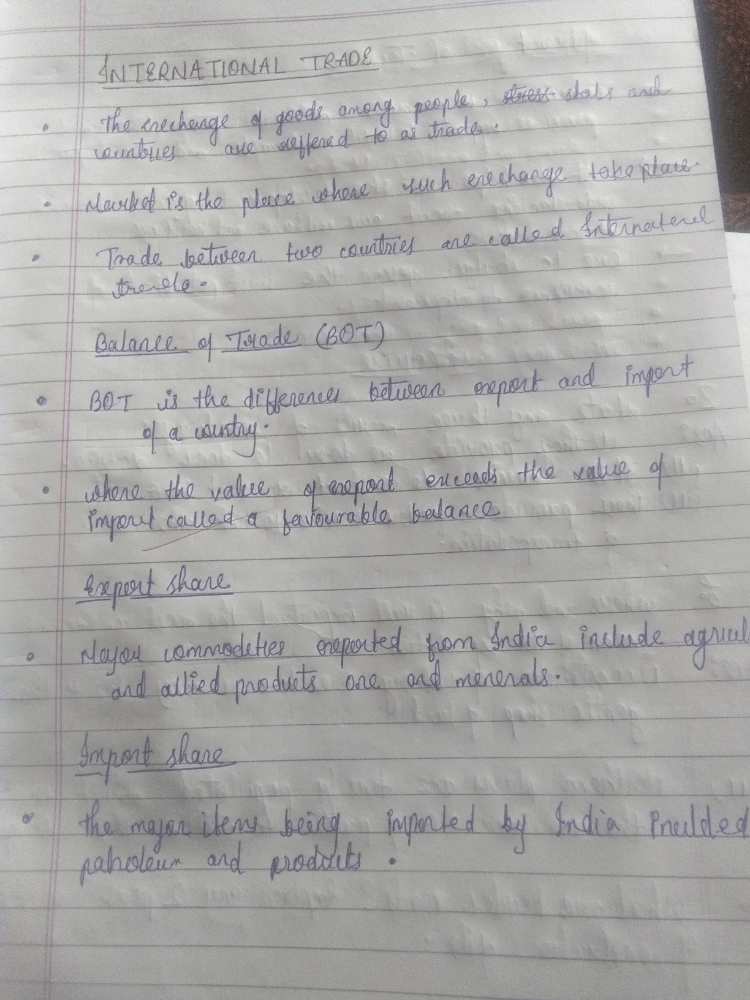 INTERNATIONAL TRADE
• The exechange of goods among people, states and
countries are reffered to as trade.
• Market is the place where such exechange take place.
• Trade between two countries are called International
trade.
Balance of Trade (BOT)
• BOT is the difference between export and import
of a country.
• where the value of export exceeds the value of
import called a favourable balance
Export share
• Mayou commodities exported from India include agricul
and allied products one and menerals.
Import share
• the major items being imported by India inculded
patroleum and products.